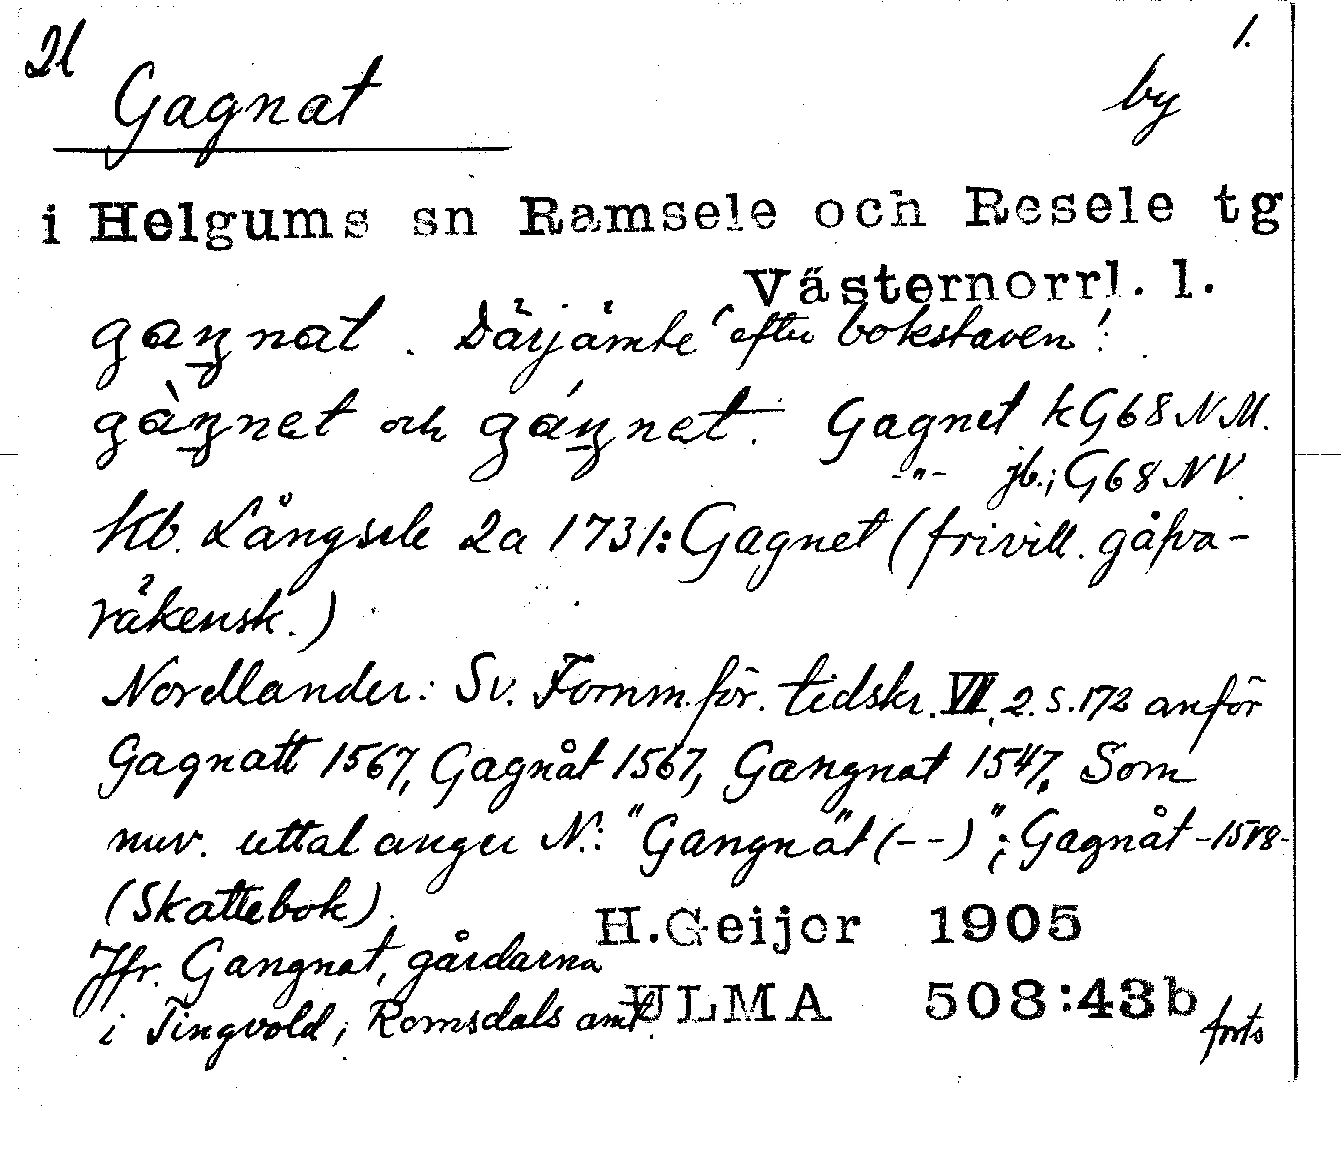 Ål 1.
Gagnat by
i Helgums sn Ramsele och Resele tg
Västernorrl. l.
gaŋnat. Därjämte "efter bokstaven":
gàŋnet och gáŋnet. Gagnet kG68NM.
-"- jb.; G68NV.
Kb. Långsele 2a 1731: Gagnet (frivill. gåfva-
räkensk.)
Nordlander: Sv. Fornm.för. tidskr. VII, 2. s. 172 anför
Gagnatt 1567, Gagnåt 1567, Gangnat 1547. Som
nuv. uttal anger N.: "Gangnät (--)"; Gagnåt -1518-
(Skattebok).
H.Geijer 1905
Jfr. Gangnat, gårdarna
i Tingvold, Romsdals amt.
ULMA 508:43b forts